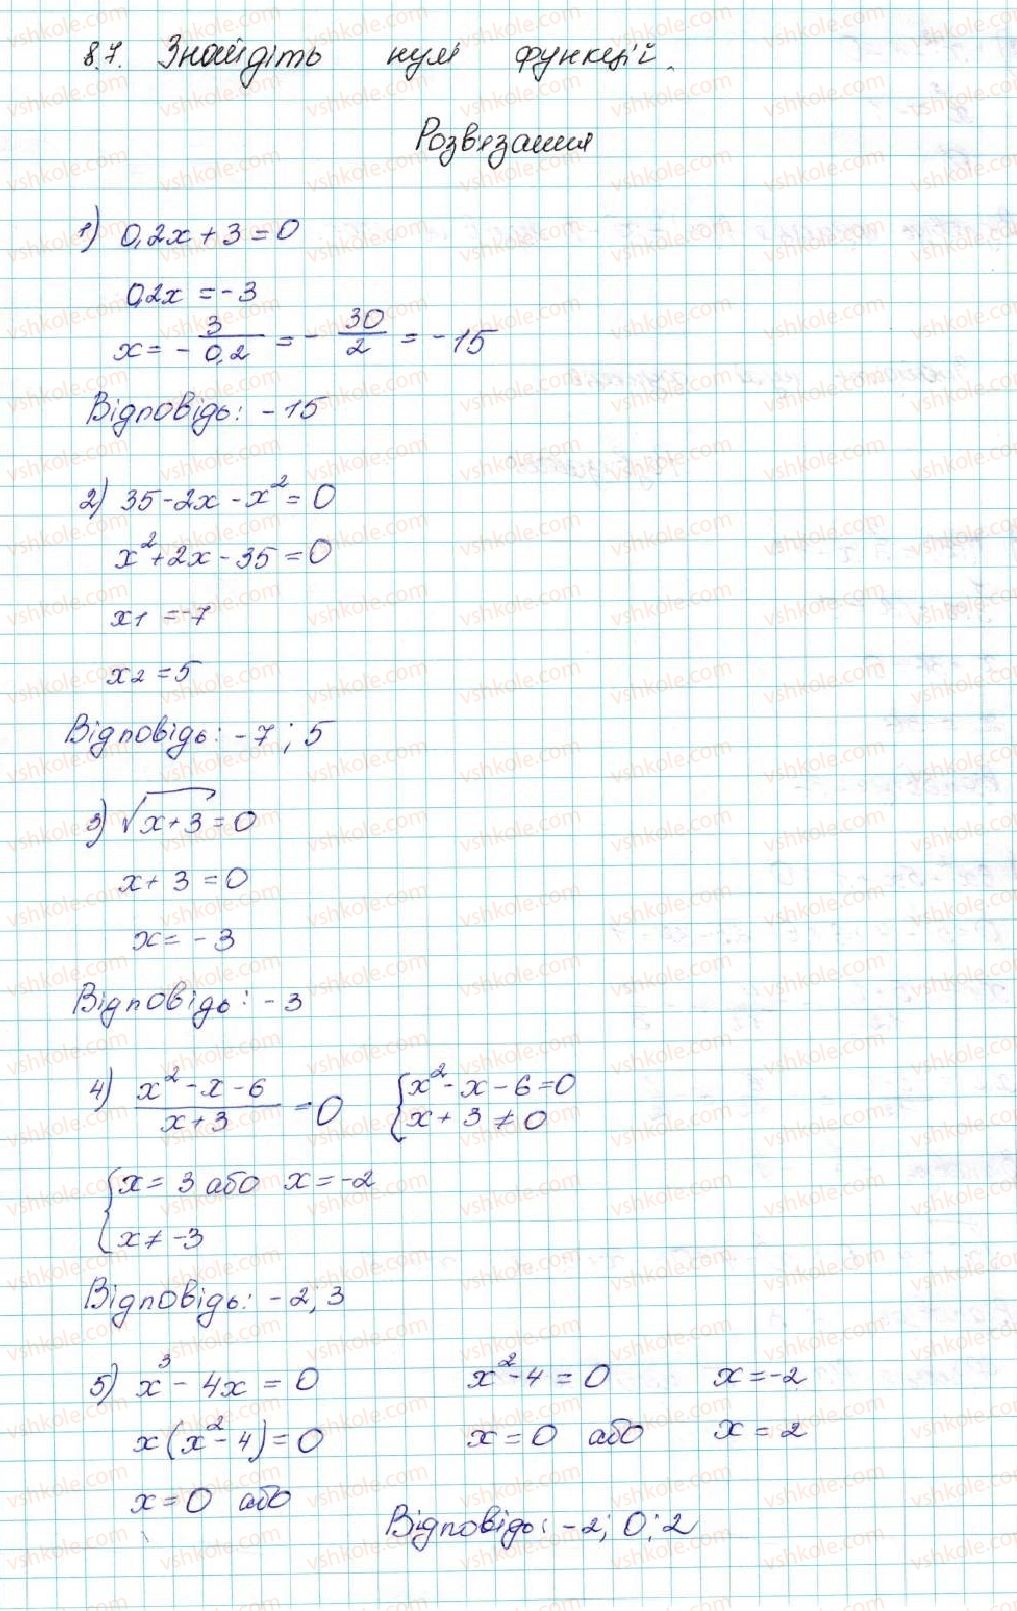 8.7. Знайдіть нулі функцій.
Розв'язання
1) 0,2x + 3 = 0
0,2x = -3
x = - 3/0,2 = - 30/2 = -15
Відповідь: -15
2) 35 - 2x - x² = 0
x² + 2x - 35 = 0
x1 = -7
x2 = 5
Відповідь: -7; 5
3) √(x+3) = 0
x + 3 = 0
x = -3
Відповідь: -3
4) (x² - x - 6)/(x + 3) = 0 { x² - x - 6 = 0
x + 3 ≠ 0
{ x = 3 або x = -2
x ≠ -3
Відповідь: -2; 3
5) x³ - 4x = 0 x² - 4 = 0 x = -2
x(x² - 4) = 0 x = 0 або x = 2
x = 0 або
Відповідь: -2; 0; 2
vshkole.com